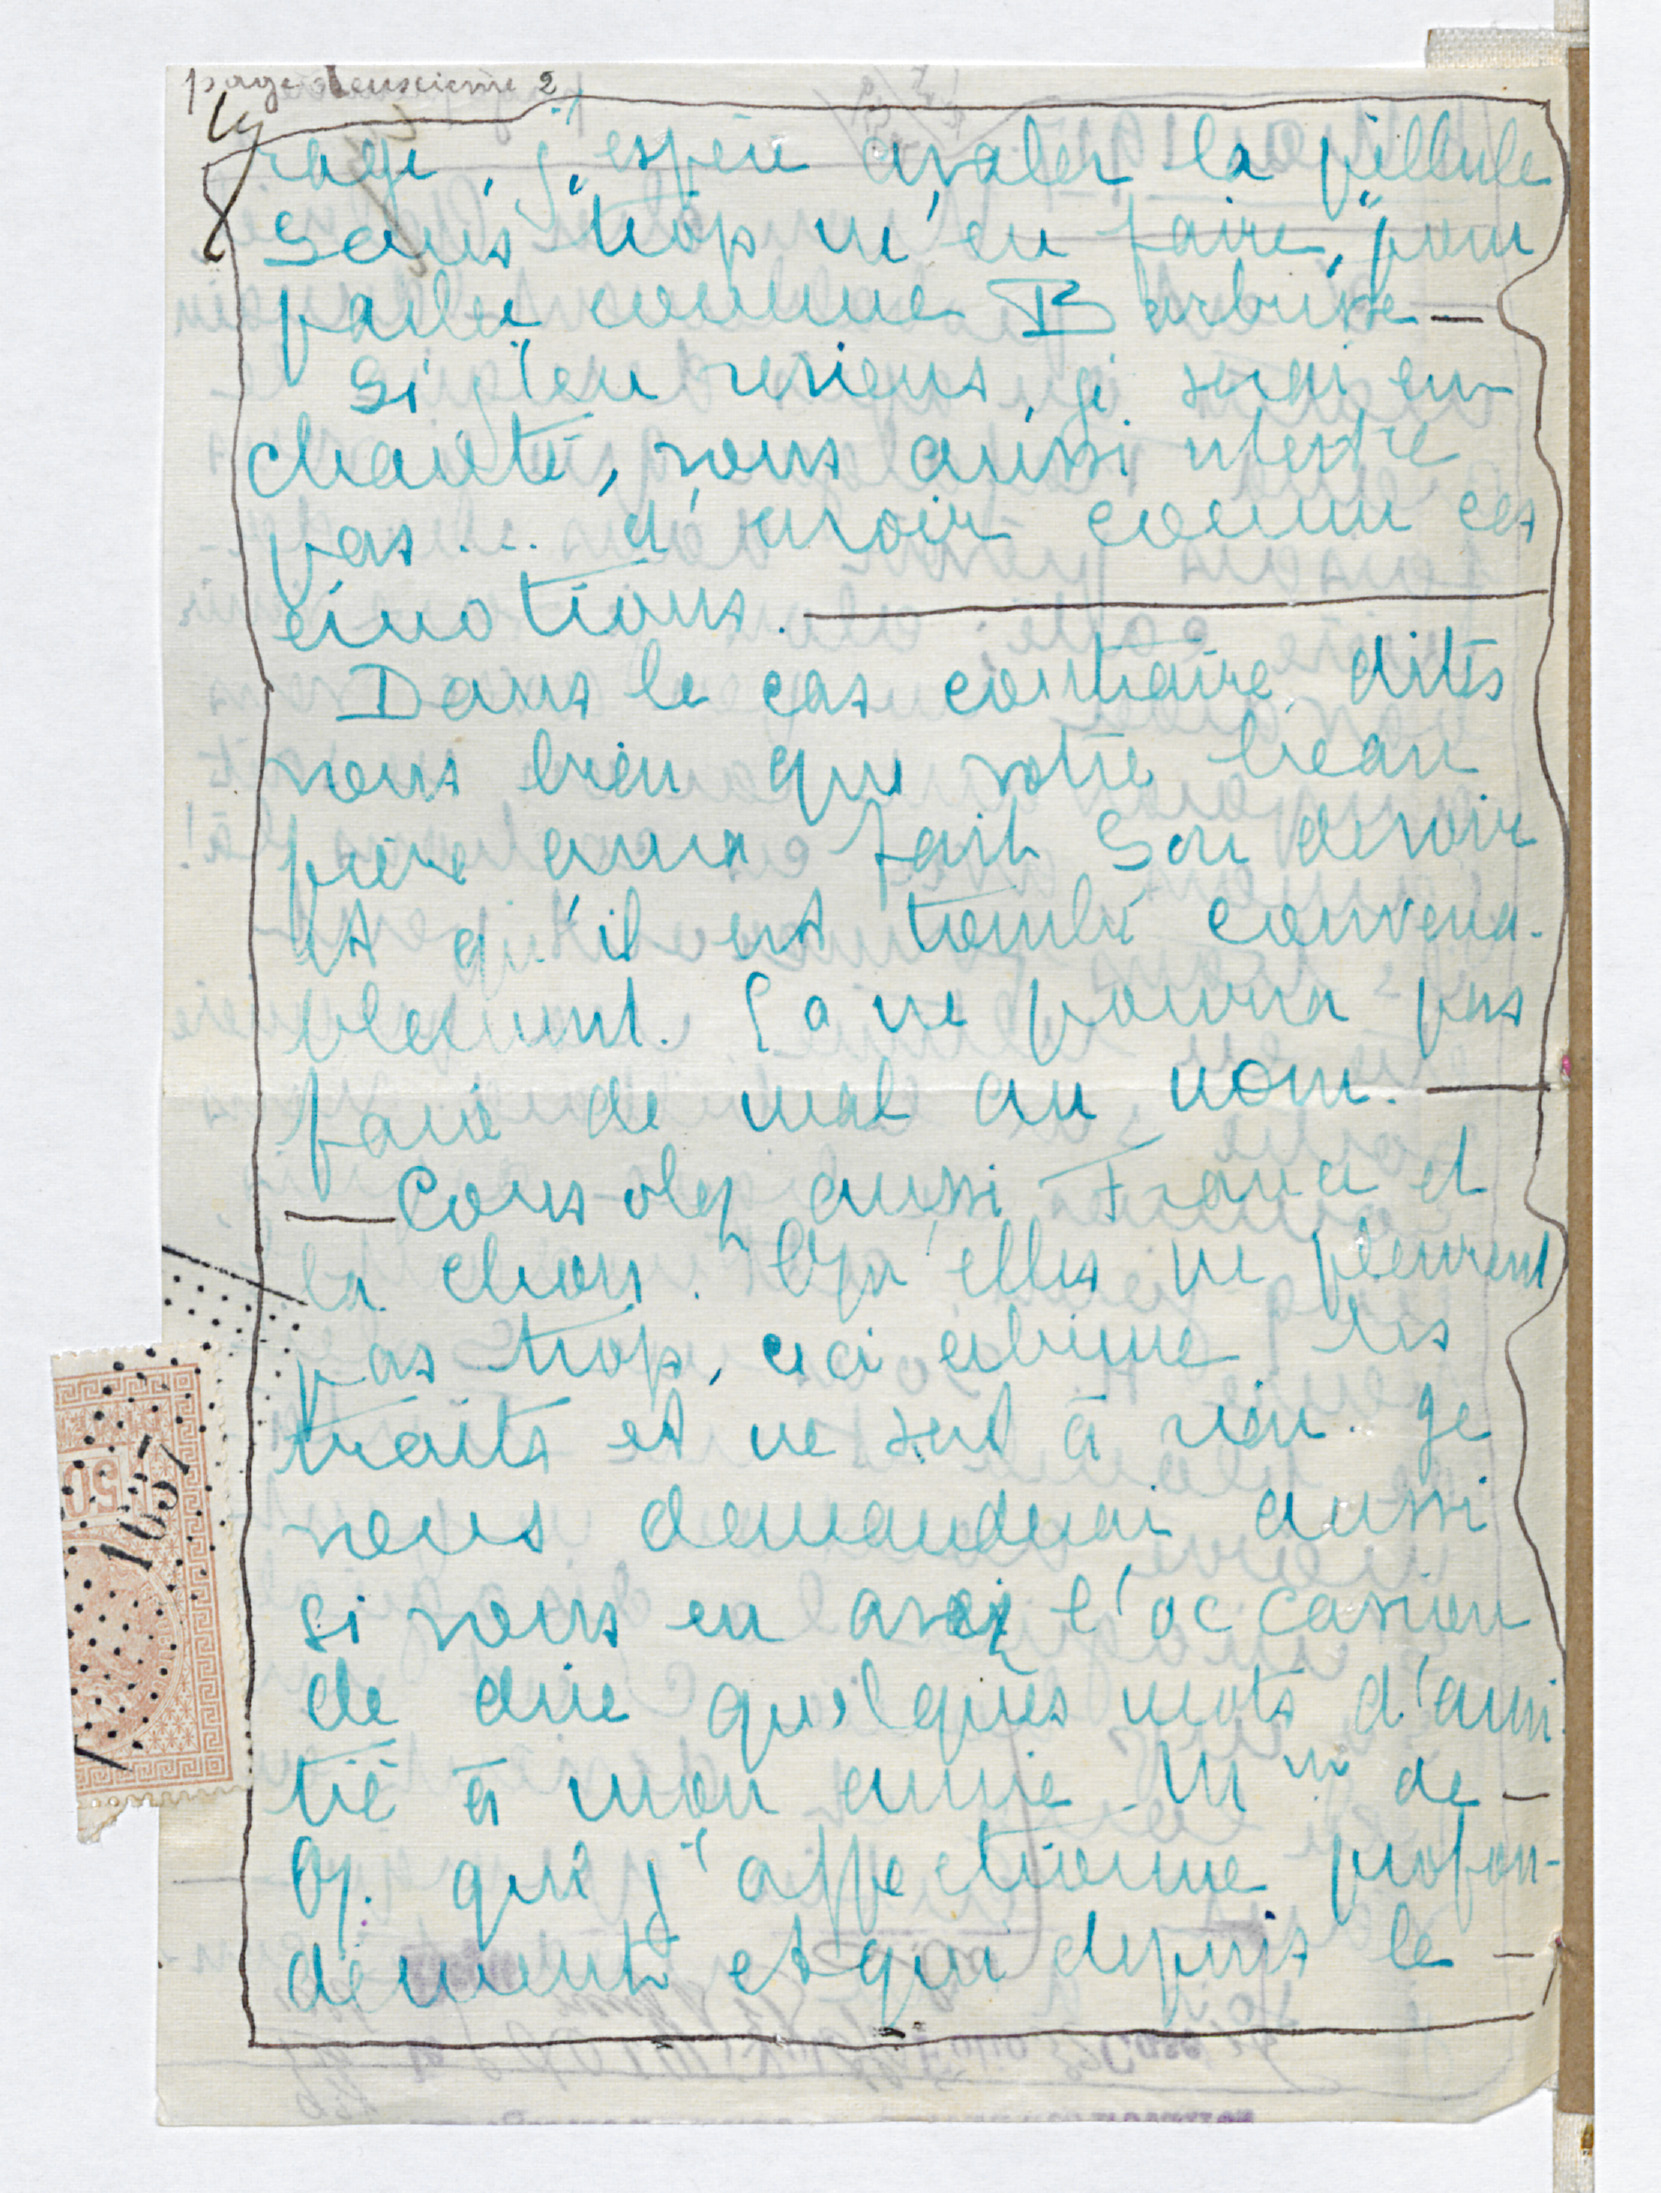 page deuxième 2
rage, j'espère avaler la pillule
sans "trop m'en faire," pour
parler comme Barbusse —
Si j'en reviens, je serai en-
chanté, vous aussi n'est-ce
pas... d'avoir connu ces
émotions.
Dans le cas contraire dites
vous bien que votre beau
père aura fait son devoir
et qu'il est tombé convena-
blement. Ça ne pourra pas
faire de mal au nom. —
— Consolez aussi France et
la chou. Qu'elles ne pleurent
pas trop, ceci abime les
traits et ne sert à rien. Je
vous demanderai aussi
si vous en avez l'occasion
de dire quelques mots d'ami
tié à mon amie Mme de —
Q. que j'affectionne profon-
dément et qui depuis le —
50
1637